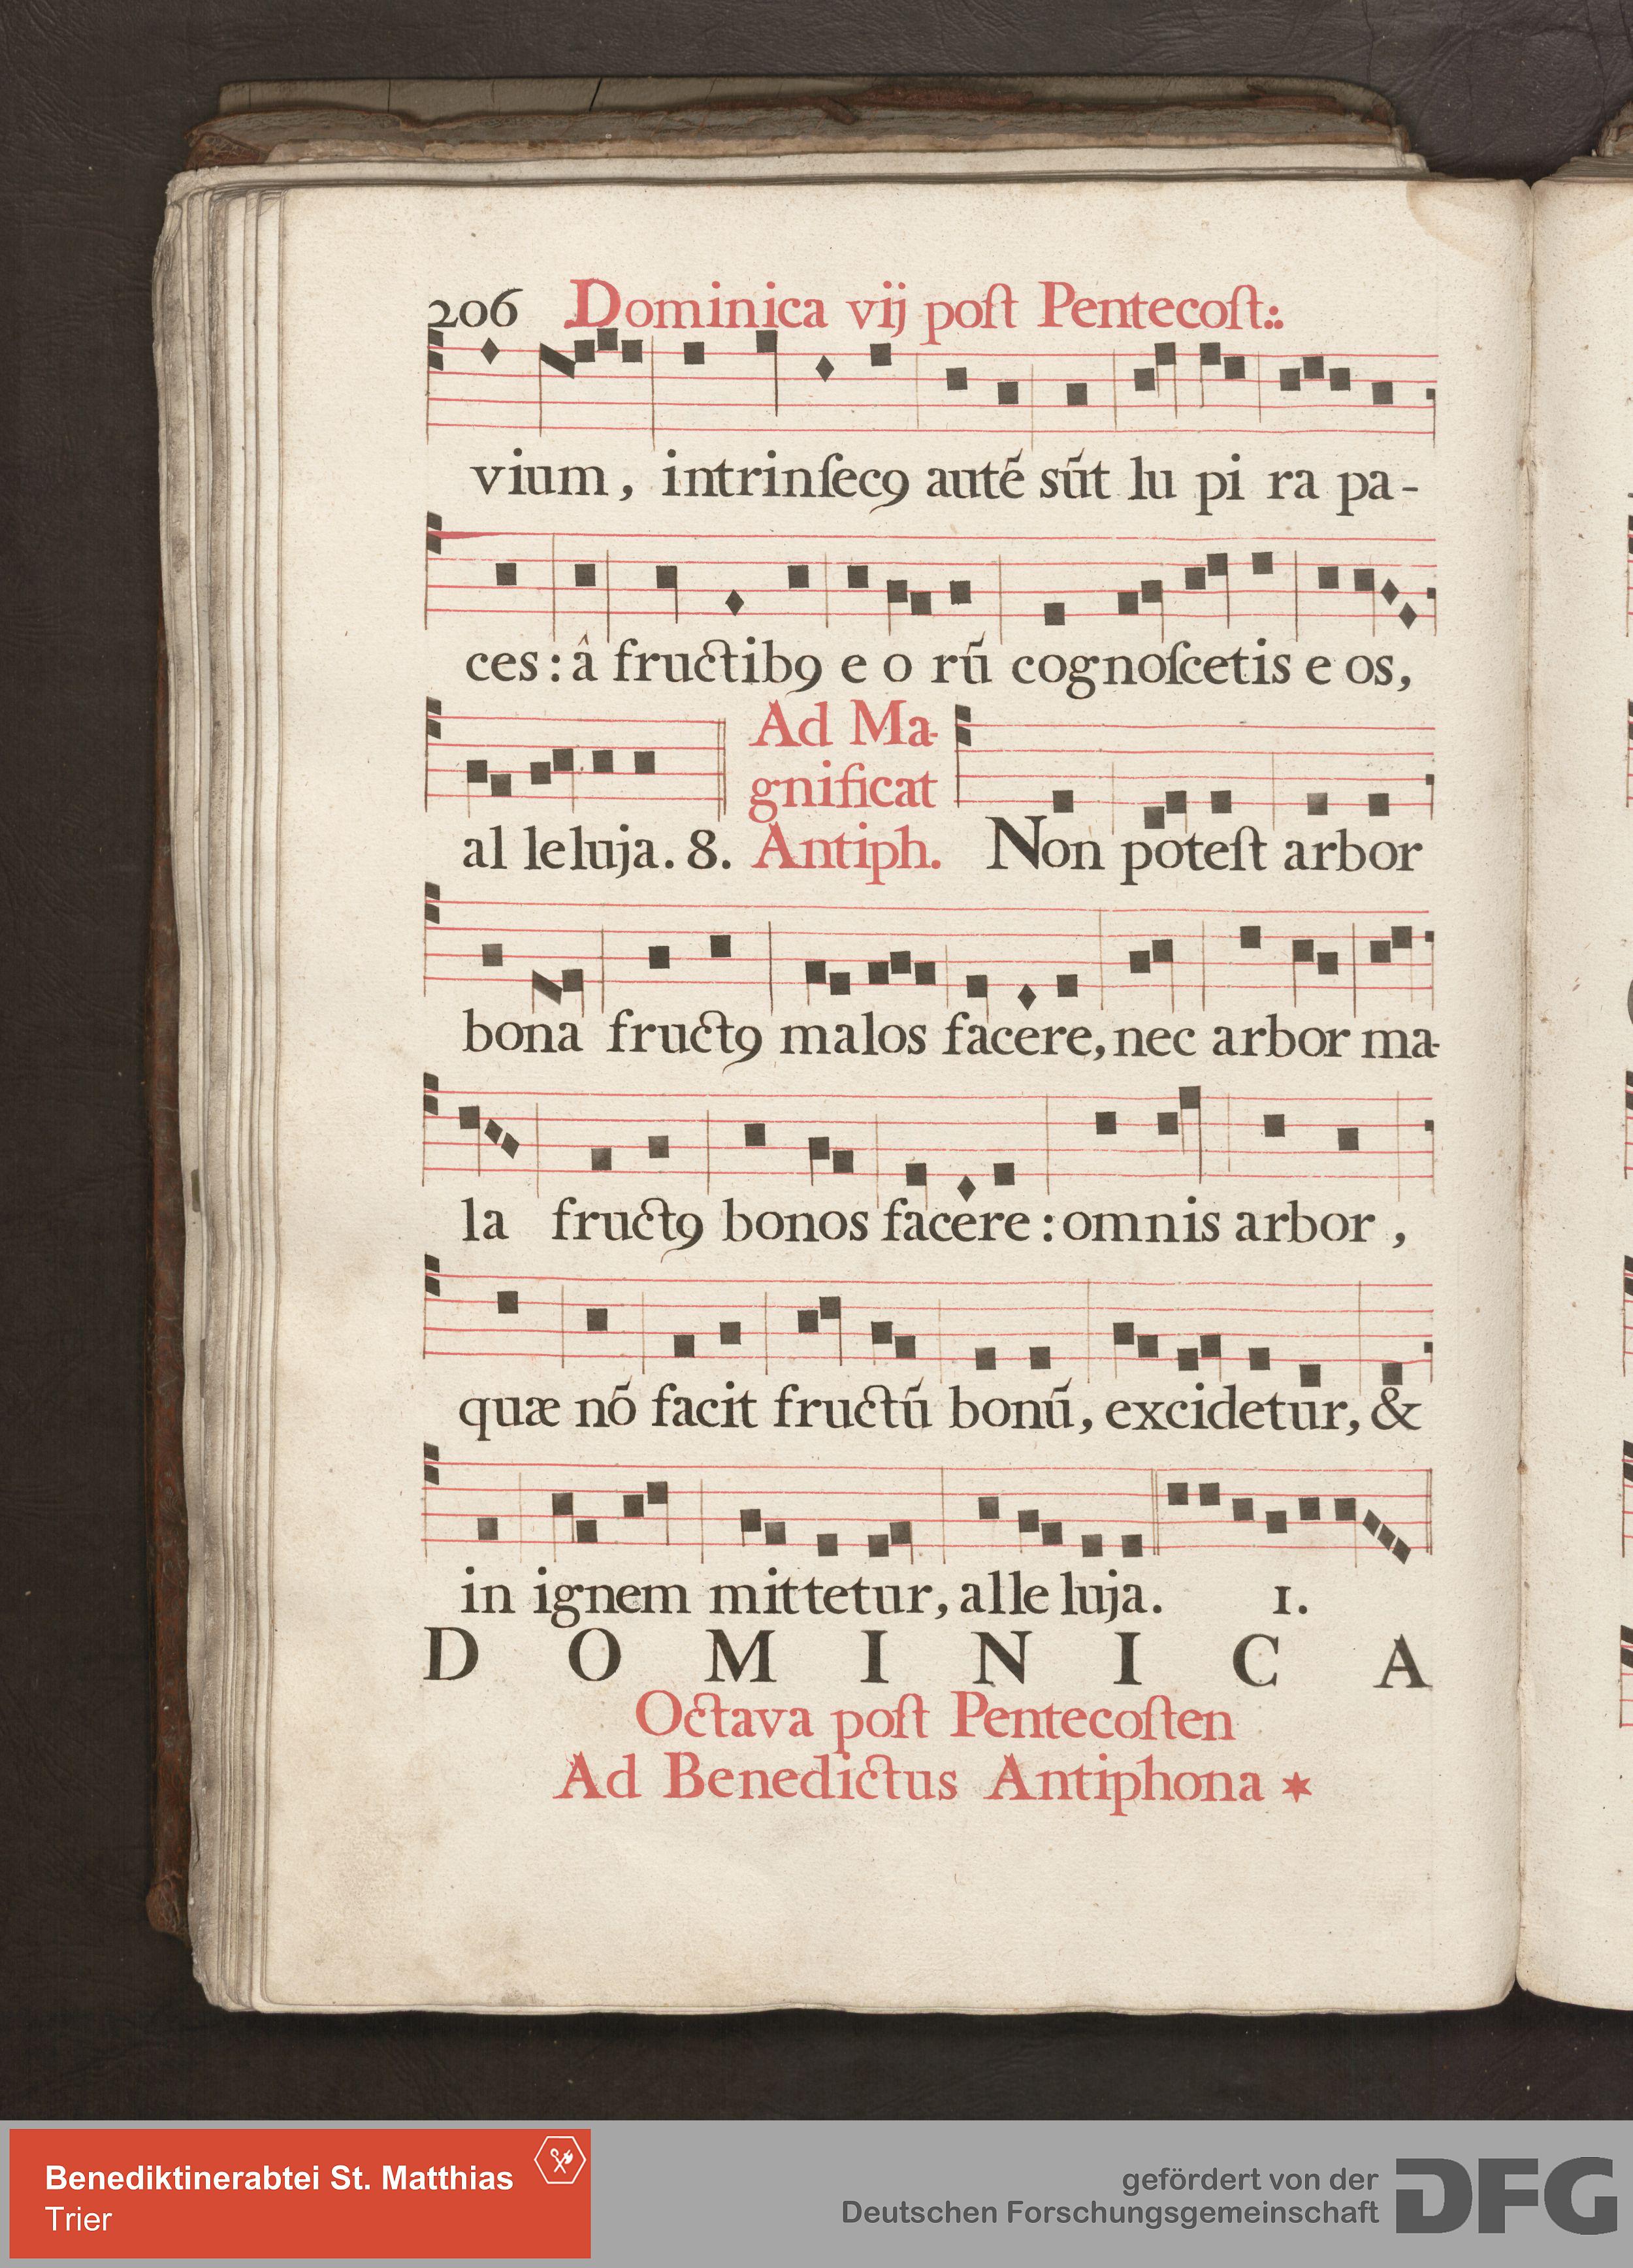 206 Dominica vij poſt Pentecoſt:.
vium, intrinſecꝯ autē sūt lu pi ra pa-
ces: â fructibꝯ e o rū cognoſcetis e os,
al leluja. 8. Ad Ma-
gnificat
Antiph. Non poteſt arbor
bona fructꝯ malos facere, nec arbor ma-
la fructꝯ bonos facere: omnis arbor,
quæ nō facit fructū bonū, excidetur, &
in ignem mittetur, alle luja. 1.
D O M I N I C A
Octava poſt Pentecoſten
Ad Benedictus Antiphona *
Benediktinerabtei St. Matthias
Trier
gefördert von der
Deutschen Forschungsgemeinschaft
DFG